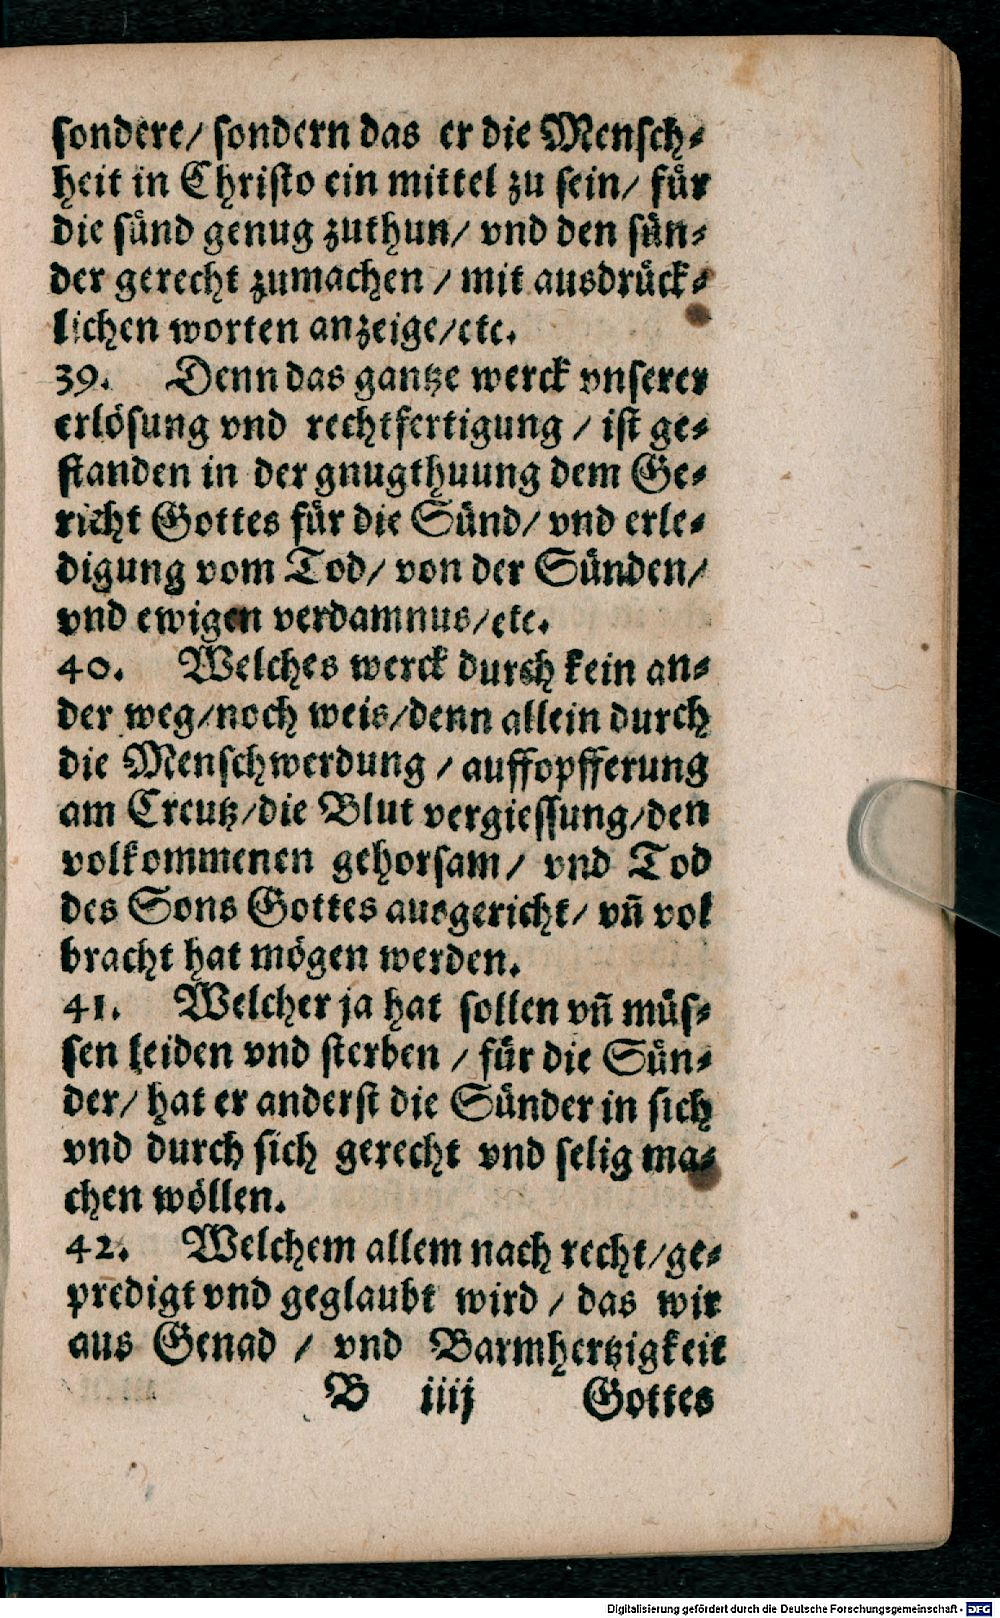 sondere/ sondern das er die Mensch⸗
heit in Christo ein mittel zu sein/ für
die sünd genug zuthun/ vnd den sün⸗
der gerecht zumachen / mit ausdrück⸗
lichen worten anzeige/etc.
39. Denn das gantze werck vnserer
erlösung vnd rechtfertigung / ist ge⸗
standen in der gnugthuung dem Ge⸗
richt Gottes für die Sünd/ vnd erle⸗
digung vom Tod/ von der Sünden/
vnd ewigen verdamnus/etc.
40. Welches werck durch kein an⸗
der weg/noch weis/denn allein durch
die Menschwerdung / auffopfferung
am Creutz/die Blut vergiessung/den
volkommenen gehorsam/ vnd Tod
des Sons Gottes ausgericht/ vn̄ vol
bracht hat mögen werden.
41. Welcher ja hat sollen vn̄ müs⸗
sen leiden vnd sterben / für die Sün⸗
der/ hat er anderst die Sünder in sich
vnd durch sich gerecht vnd selig ma⸗
chen wöllen.
42. Welchem allem nach recht/ge⸗
predigt vnd geglaubt wird / das wir
aus Genad / vnd Barmhertzigkeit
B iiij Gottes
Digitalisierung gefördert durch die Deutsche Forschungsgemeinschaft - DFG